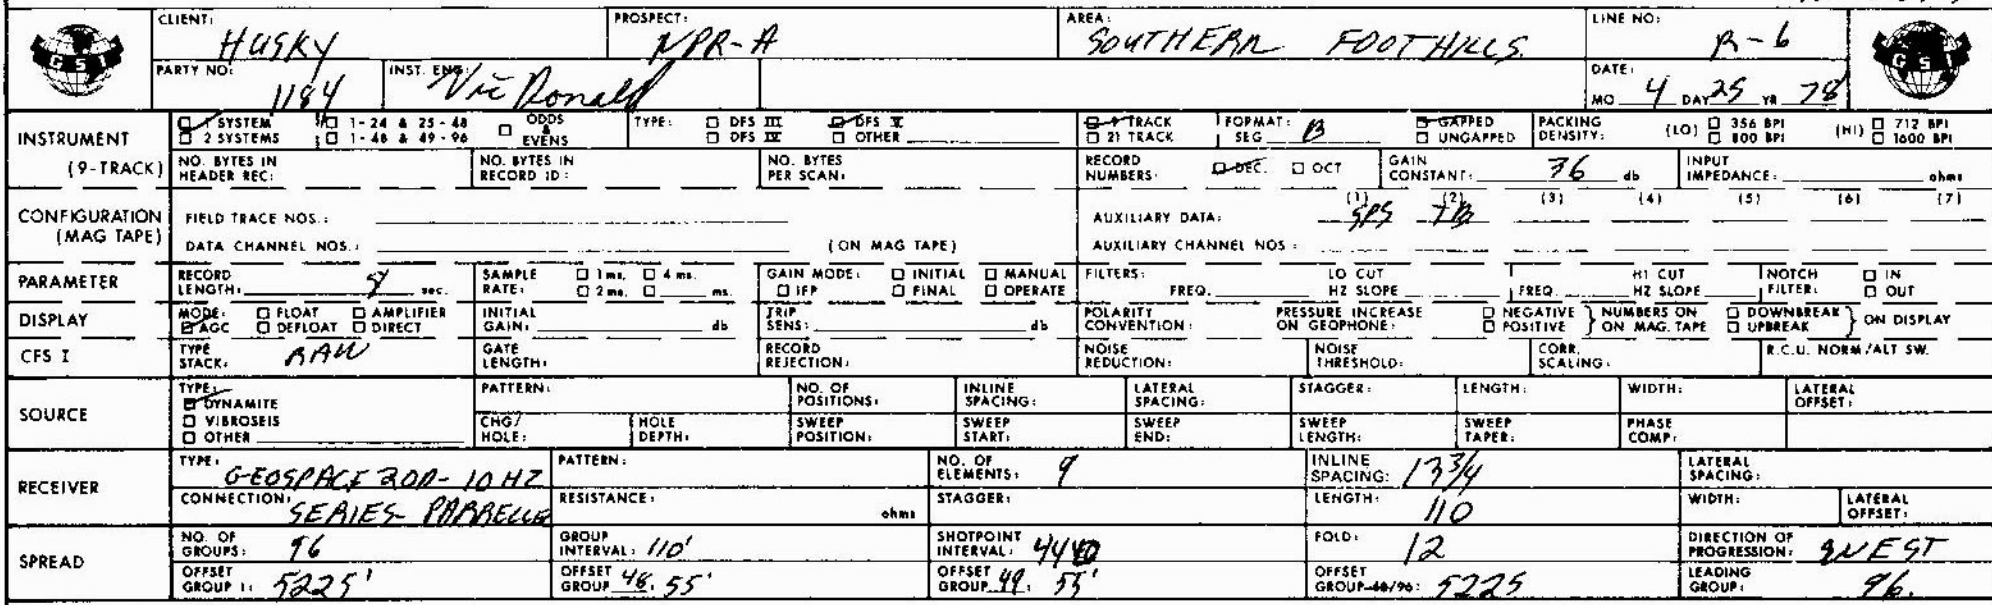 CLIENT: HUSKY PROSPECT: NPR-A AREA: SOUTHERN FOOTHILLS. LINE NO: R-6
GSI GSI
PARTY NO: 1184 INST. ENG: Vic Ronald DATE:
MO 4 DAY 25 YR 78
INSTRUMENT (9-TRACK)
SYSTEM 1-24 & 25-48 ODDS & EVENS TYPE: DFS III DFS V 9 TRACK FORMAT: GAPPED PACKING DENSITY: (LO) 356 BPI (HI) 712 BPI
2 SYSTEMS 1-48 & 49-96 DFS IV OTHER 21 TRACK SEG B UNGAPPED 800 BPI 1600 BPI
NO. BYTES IN HEADER REC: NO. BYTES IN RECORD ID: NO. BYTES PER SCAN: RECORD NUMBERS: DEC. OCT GAIN CONSTANT: 36 db INPUT IMPEDANCE: ohms
CONFIGURATION (MAG TAPE)
FIELD TRACE NOS.: AUXILIARY DATA: (1) SPS (2) TB (3) (4) (5) (6) (7)
DATA CHANNEL NOS.: (ON MAG TAPE) AUXILIARY CHANNEL NOS:
PARAMETER RECORD LENGTH: sec. SAMPLE RATE: 1 ms. 4 ms. 2 ms. ms. GAIN MODE: INITIAL MANUAL IFP FINAL OPERATE FILTERS: FREQ. LO CUT HZ SLOPE FREQ. HI CUT HZ SLOPE NOTCH FILTER: IN OUT
DISPLAY MODE: FLOAT AMPLIFIER AGC DEFLOAT DIRECT INITIAL GAIN: db TRIP SENS: db POLARITY CONVENTION: PRESSURE INCREASE ON GEOPHONE: NEGATIVE POSITIVE NUMBERS ON ON MAG. TAPE DOWNBREAK UPBREAK ON DISPLAY
CFS I TYPE STACK: RAW GATE LENGTH: RECORD REJECTION: NOISE REDUCTION: NOISE THRESHOLD: CORR. SCALING: R.C.U. NORM/ALT SW.
SOURCE
TYPE: DYNAMITE VIBROSEIS OTHER
PATTERN: NO. OF POSITIONS: INLINE SPACING: LATERAL SPACING: STAGGER: LENGTH: WIDTH: LATERAL OFFSET:
CHG/HOLE: HOLE DEPTH: SWEEP POSITION: SWEEP START: SWEEP END: SWEEP LENGTH: SWEEP TAPER: PHASE COMP:
RECEIVER
TYPE: GEOSPACE 20D-10 HZ PATTERN: NO. OF ELEMENTS: 9 INLINE SPACING: 13 3/4 LATERAL SPACING:
CONNECTION: SERIES PARRELLE RESISTANCE: ohms STAGGER: LENGTH: 110 WIDTH: LATERAL OFFSET:
SPREAD
NO. OF GROUPS: 96 GROUP INTERVAL: 110' SHOTPOINT INTERVAL: 440 FOLD: 12 DIRECTION OF PROGRESSION: WEST
OFFSET GROUP 1: 5225' OFFSET GROUP 48: 55' OFFSET GROUP 49: 55' OFFSET GROUP 48/96: 5225 LEADING GROUP: 96.